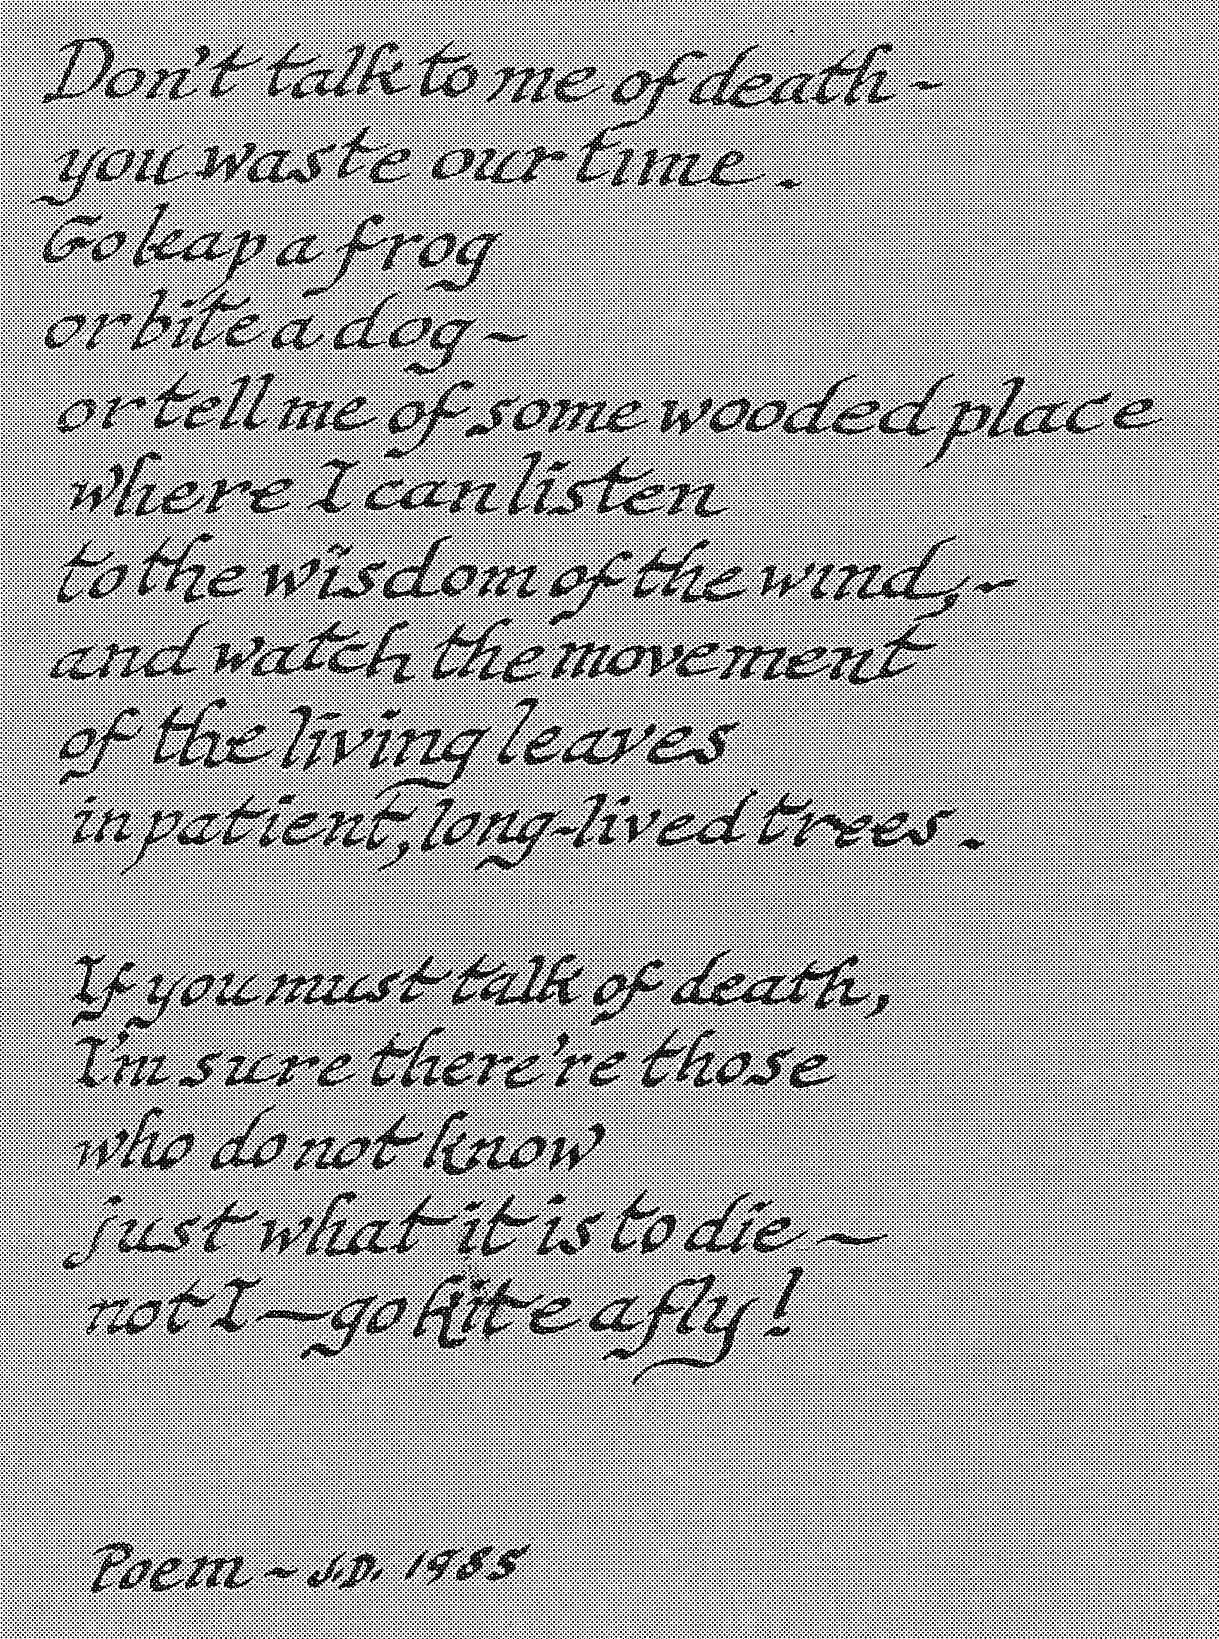 Don't talk to me of death ~
you waste our time.
Go leap a frog
or bite a dog ~
or tell me of some wooded place
where I can listen
to the wisdom of the wind, ~
and watch the movement
of the living leaves
in patient, long-lived trees.
If you must talk of death,
I'm sure there're those
who do not know
just what it is to die ~
not I ~ go kite a fly!
Poem ~ J.D. 1985